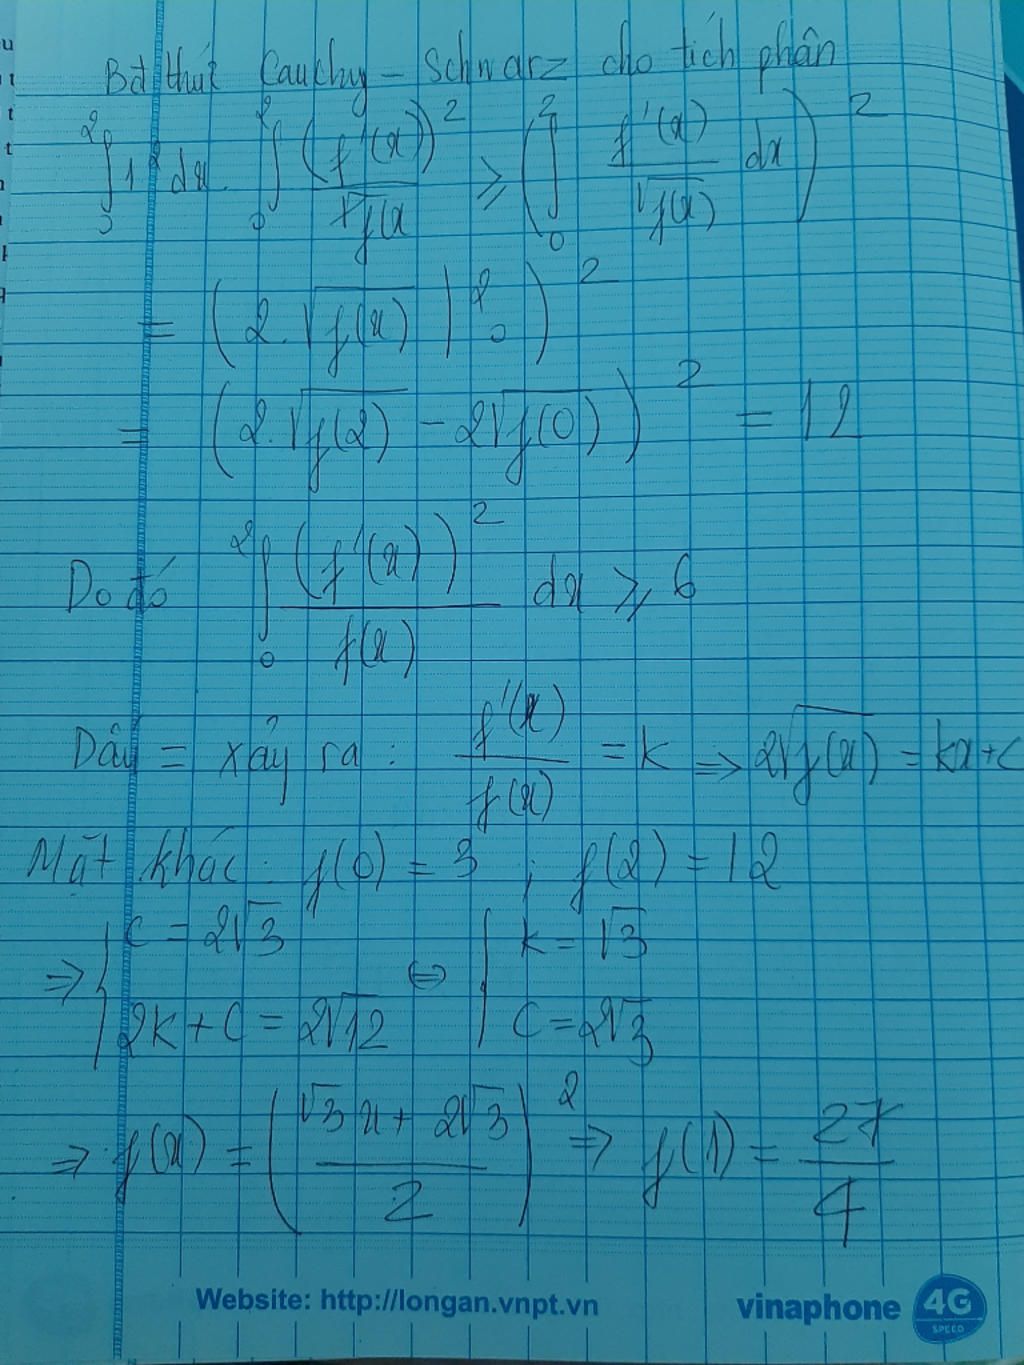 Bđ thức Cauchy – Schwarz cho tích phân
2∫0 1² dx . 2∫0 (f'(x)/√f(x)² ≥ (2∫0 f'(x)/√f(x) dx)²
= (2.√f(x) |2 0)²
= (2.√f(2) - 2√f(0))² = 12
Do đó 2∫0 (f'(x))²/f(x) dx ≥ 6
Dấu = xảy ra : f'(x)/f(x) = k ⇒ 2√f(x) = kx+c
Mặt khác : f(0) = 3 ; f(2) = 12
⇒ { c = 2√3 ⇔ { k = √3
2k + c = 2√12 c = 2√3
⇒ f(x) = ((√3 x + 2√3)/2)² ⇒ f(1) = 27/4
Website: http://longan.vnpt.vn vinaphone 4G SPEED